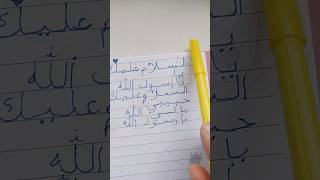 السلام عليك
يا رسول الله
السلام عليك
حبيبي
يا نبي الله
يا رسول الله